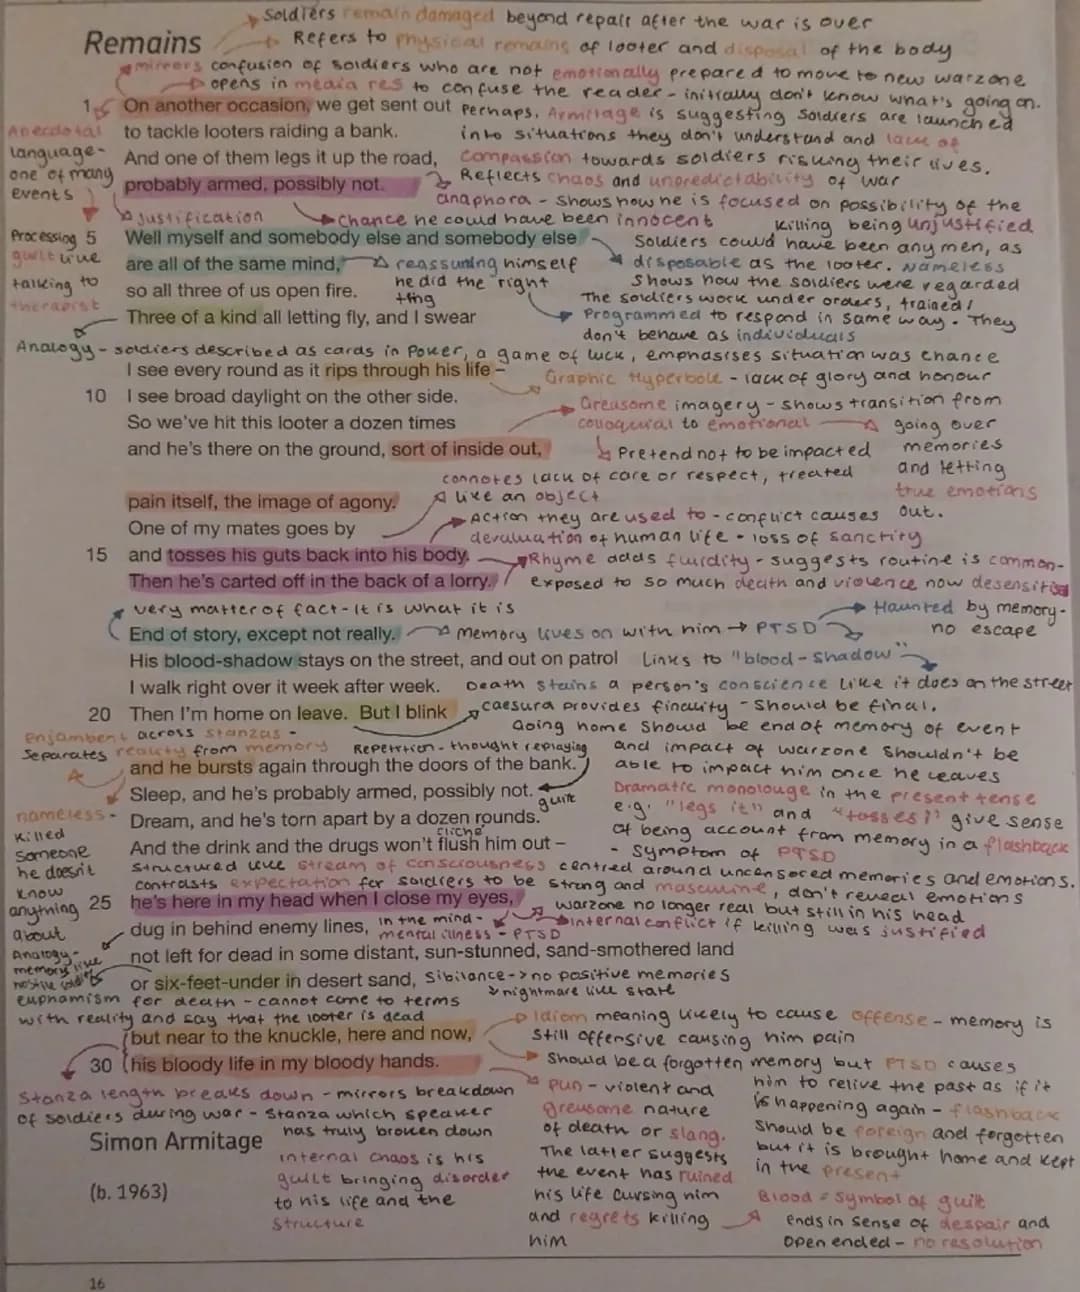 Soldiers remain damaged beyond repair after the war is over
Remains
Refers to physical remains of looter and disposal of the body
mirrors confusion of soldiers who are not emotionally prepared to move to new warzone
opens in media res to confuse the reader - initially don't know what's going on.
1 On another occasion, we get sent out
Perhaps, Armitage is suggesting soldiers are launched
to tackle looters raiding a bank.
into situations they don't understand and lack of
Anecdotal
language -
one of many
events
And one of them legs it up the road,
compassion towards soldiers risking their lives.
probably armed, possibly not.
Reflects chaos and unpredictability of war
anaphora - shows how he is focused on possibility of the
killing being unjustified
Justification
chance he could have been innocent
Processing
guilt like
talking to
therapist
5 Well myself and somebody else and somebody else
Soldiers could have been any men, as
disposable as the looter. Nameless
shows how the soldiers were regarded
are all of the same mind,
reassuring himself
he did the right
thing
so all three of us open fire.
The soldiers work under orders, trained /
Three of a kind all letting fly, and I swear
Programmed to respond in same way. They
don't behave as individuals
Analogy - soldiers described as cards in Poker, a game of luck, emphasises situation was chance
I see every round as it rips through his life –
Graphic Hyperbole - lack of glory and honour
10 I see broad daylight on the other side.
Greusome imagery - shows transition from
colloquial to emotional
going over
memories
and letting
true emotions
out.
So we've hit this looter a dozen times
and he's there on the ground, sort of inside out,
Pretend not to be impacted
connotes lack of care or respect, treated
like an object
pain itself, the image of agony.
One of my mates goes by
Action they are used to - conflict causes
devaluation of human life - loss of sanctity
15 and tosses his guts back into his body.
Rhyme adds fluidity - suggests routine is common-
Then he's carted off in the back of a lorry.
exposed to so much death and violence now desensitised
very matter of fact - It is what it is
Haunted by memory -
no escape
End of story, except not really.
Memory lives on with him → PTSD
His blood-shadow stays on the street, and out on patrol
Links to "blood-shadow"
I walk right over it week after week.
Death stains a person's conscience like it does on the street
20 Then I'm home on leave. But I blink
caesura provides finality - Should be final.
Going home should be end of memory of event
and impact of warzone shouldn't be
able to impact him once he leaves
Enjambent across stanzas -
Separates reality from memory
Repetition - thought replaying
and he bursts again through the doors of the bank.
Sleep, and he's probably armed, possibly not.
guilt
Dramatic monolouge in the present tense
e.g. "legs it" and "tosses" give sense
of being account from memory in a flashback
- Symptom of PTSD
nameless -
killed
someone
he doesn't
know
anything
about
Dream, and he's torn apart by a dozen rounds.
cliche
And the drink and the drugs won't flush him out –
Structured like stream of consciousness centred around uncensored memories and emotions.
contrasts expectation for soldiers to be strong and masculine, don't reveal emotions
25 he's here in my head when I close my eyes,
warzone no longer real but still in his head
dug in behind enemy lines,
in the mind -
mental illness - PTSD
internal conflict if killing was justified
Analogy-
memory like
not left for dead in some distant, sun-stunned, sand-smothered land
or six-feet-under in desert sand,
Sibilance -> no positive memories
nightmare like state
euphamism for death - cannot come to terms
with reality and say that the looter is dead
Idiom meaning likely to cause offense - memory is
still offensive causing him pain
but near to the knuckle, here and now,
30 his bloody life in my bloody hands.
Should be a forgotten memory but PTSD causes
him to relive the past as if it
is happening again - flashback
Should be foreign and forgotten
but it is brought home and kept
in the present
Stanza length breaks down - mirrors breakdown
of soldiers during war - Stanza which speaker
has truly broken down
pun - violent and
greusome nature
of death or slang.
The latter suggests
the event has ruined
his life cursing him
and regrets killing
him
Simon Armitage
internal chaos is his
guilt bringing disorder
to his life and the
structure
(b. 1963)
Blood = symbol of guilt
ends in sense of despair and
open ended - no resolution
16